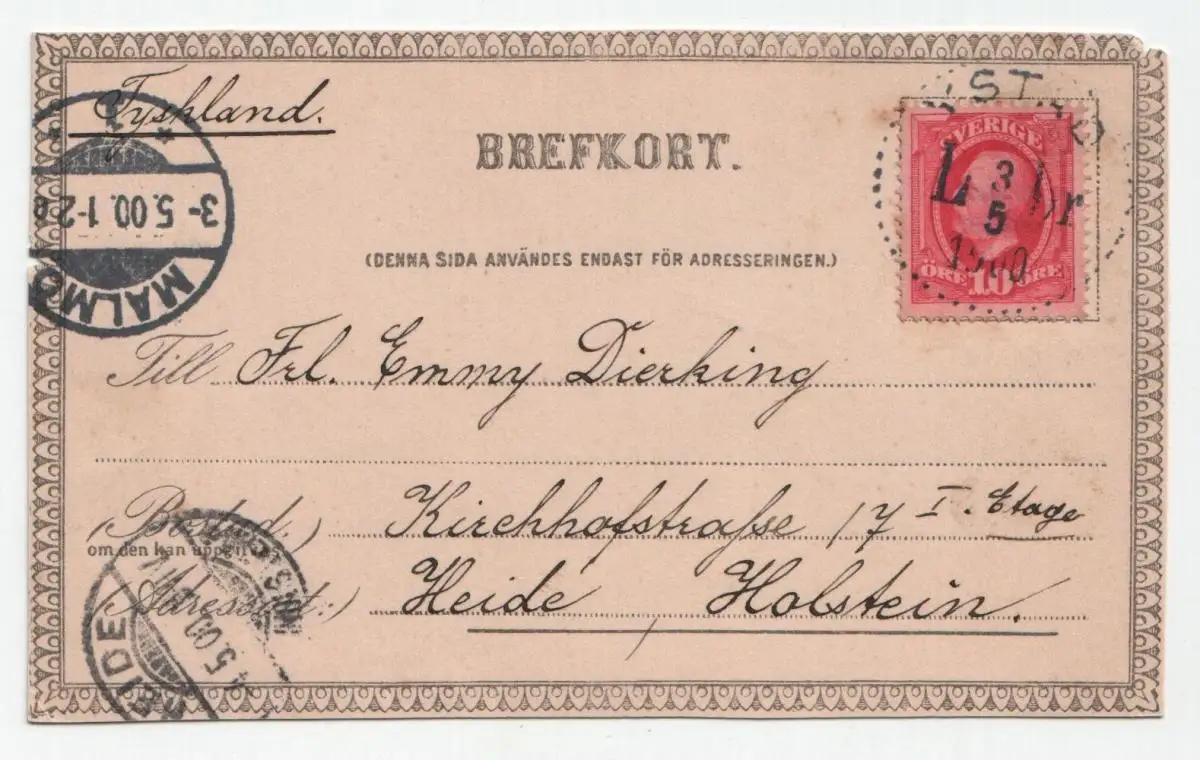 Tyskland.
BREFKORT.
(DENNA SIDA ANVÄNDES ENDAST FÖR ADRESSERINGEN.)
YSTAD
SVERIGE
L Br
3
5
1900
ÖRE 10 ÖRE
3-5.00.1-2
MALMÖ
Till Frl. Emmy Dierking
(Bostad:) Kirchhofstraße 17 I. Etage
om den kan uppgifvas
(Adressort:) Heide Holstein.
HEIDE
4.5.00.